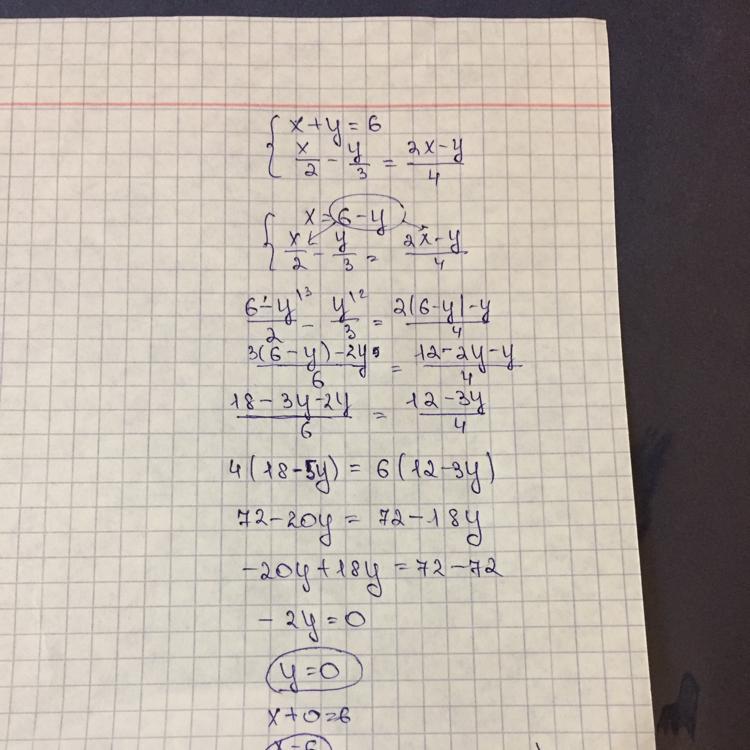 x + y = 6
x/2 - y/3 = (2x - y)/4
x = 6 - y
x/2 - y/3 = (2x - y)/4
(6 - y)/2 ^13 - y/3 ^12 = (2(6 - y) - y)/4
(3(6 - y) - 2y)/6 = (12 - 2y - y)/4
(18 - 3y - 2y)/6 = (12 - 3y)/4
4(18 - 5y) = 6(12 - 3y)
72 - 20y = 72 - 18y
-20y + 18y = 72 - 72
- 2y = 0
y = 0
x + 0 = 6
x = 6